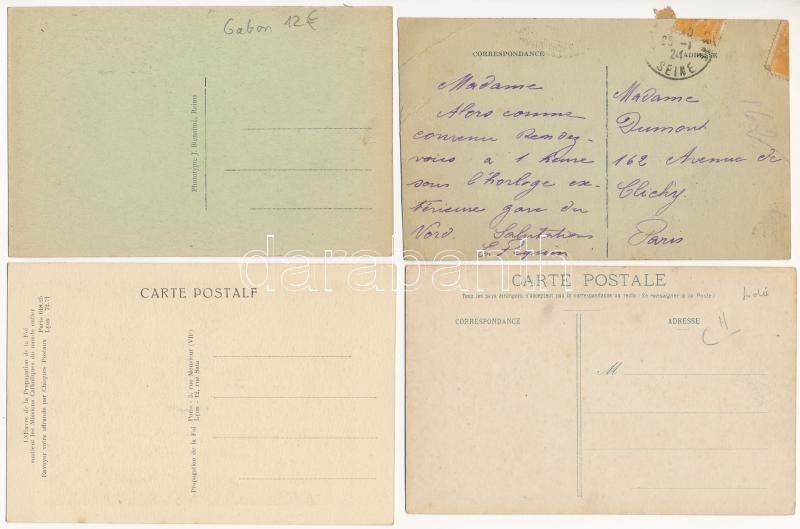 Gabon 12€
Phototypie J. Bienaimé, Reims
CORRESPONDANCE
ADRESSE
SEINE
Madame
Alors comme
convenu Rendez-
vous à 1 heure
sous l'horloge ex-
térieure gare du
Nord. Salutations
Madame
Dumont
162 Avenue de
Clichy
Paris
darabanth
CARTE POSTALE
L'Œuvre de la Propagation de la Foi
soutient les Missions Catholiques du monde entier
Envoyer votre offrande par Chèques Postaux
Propagation de la Foi
Paris - 5, rue Monsieur (VIIe)
Lyon - 12, rue Sala
CARTE POSTALE
Tous les pays étrangers n'acceptent pas la correspondance au recto (Se renseigner à la Poste)
CORRESPONDANCE
ADRESSE
M